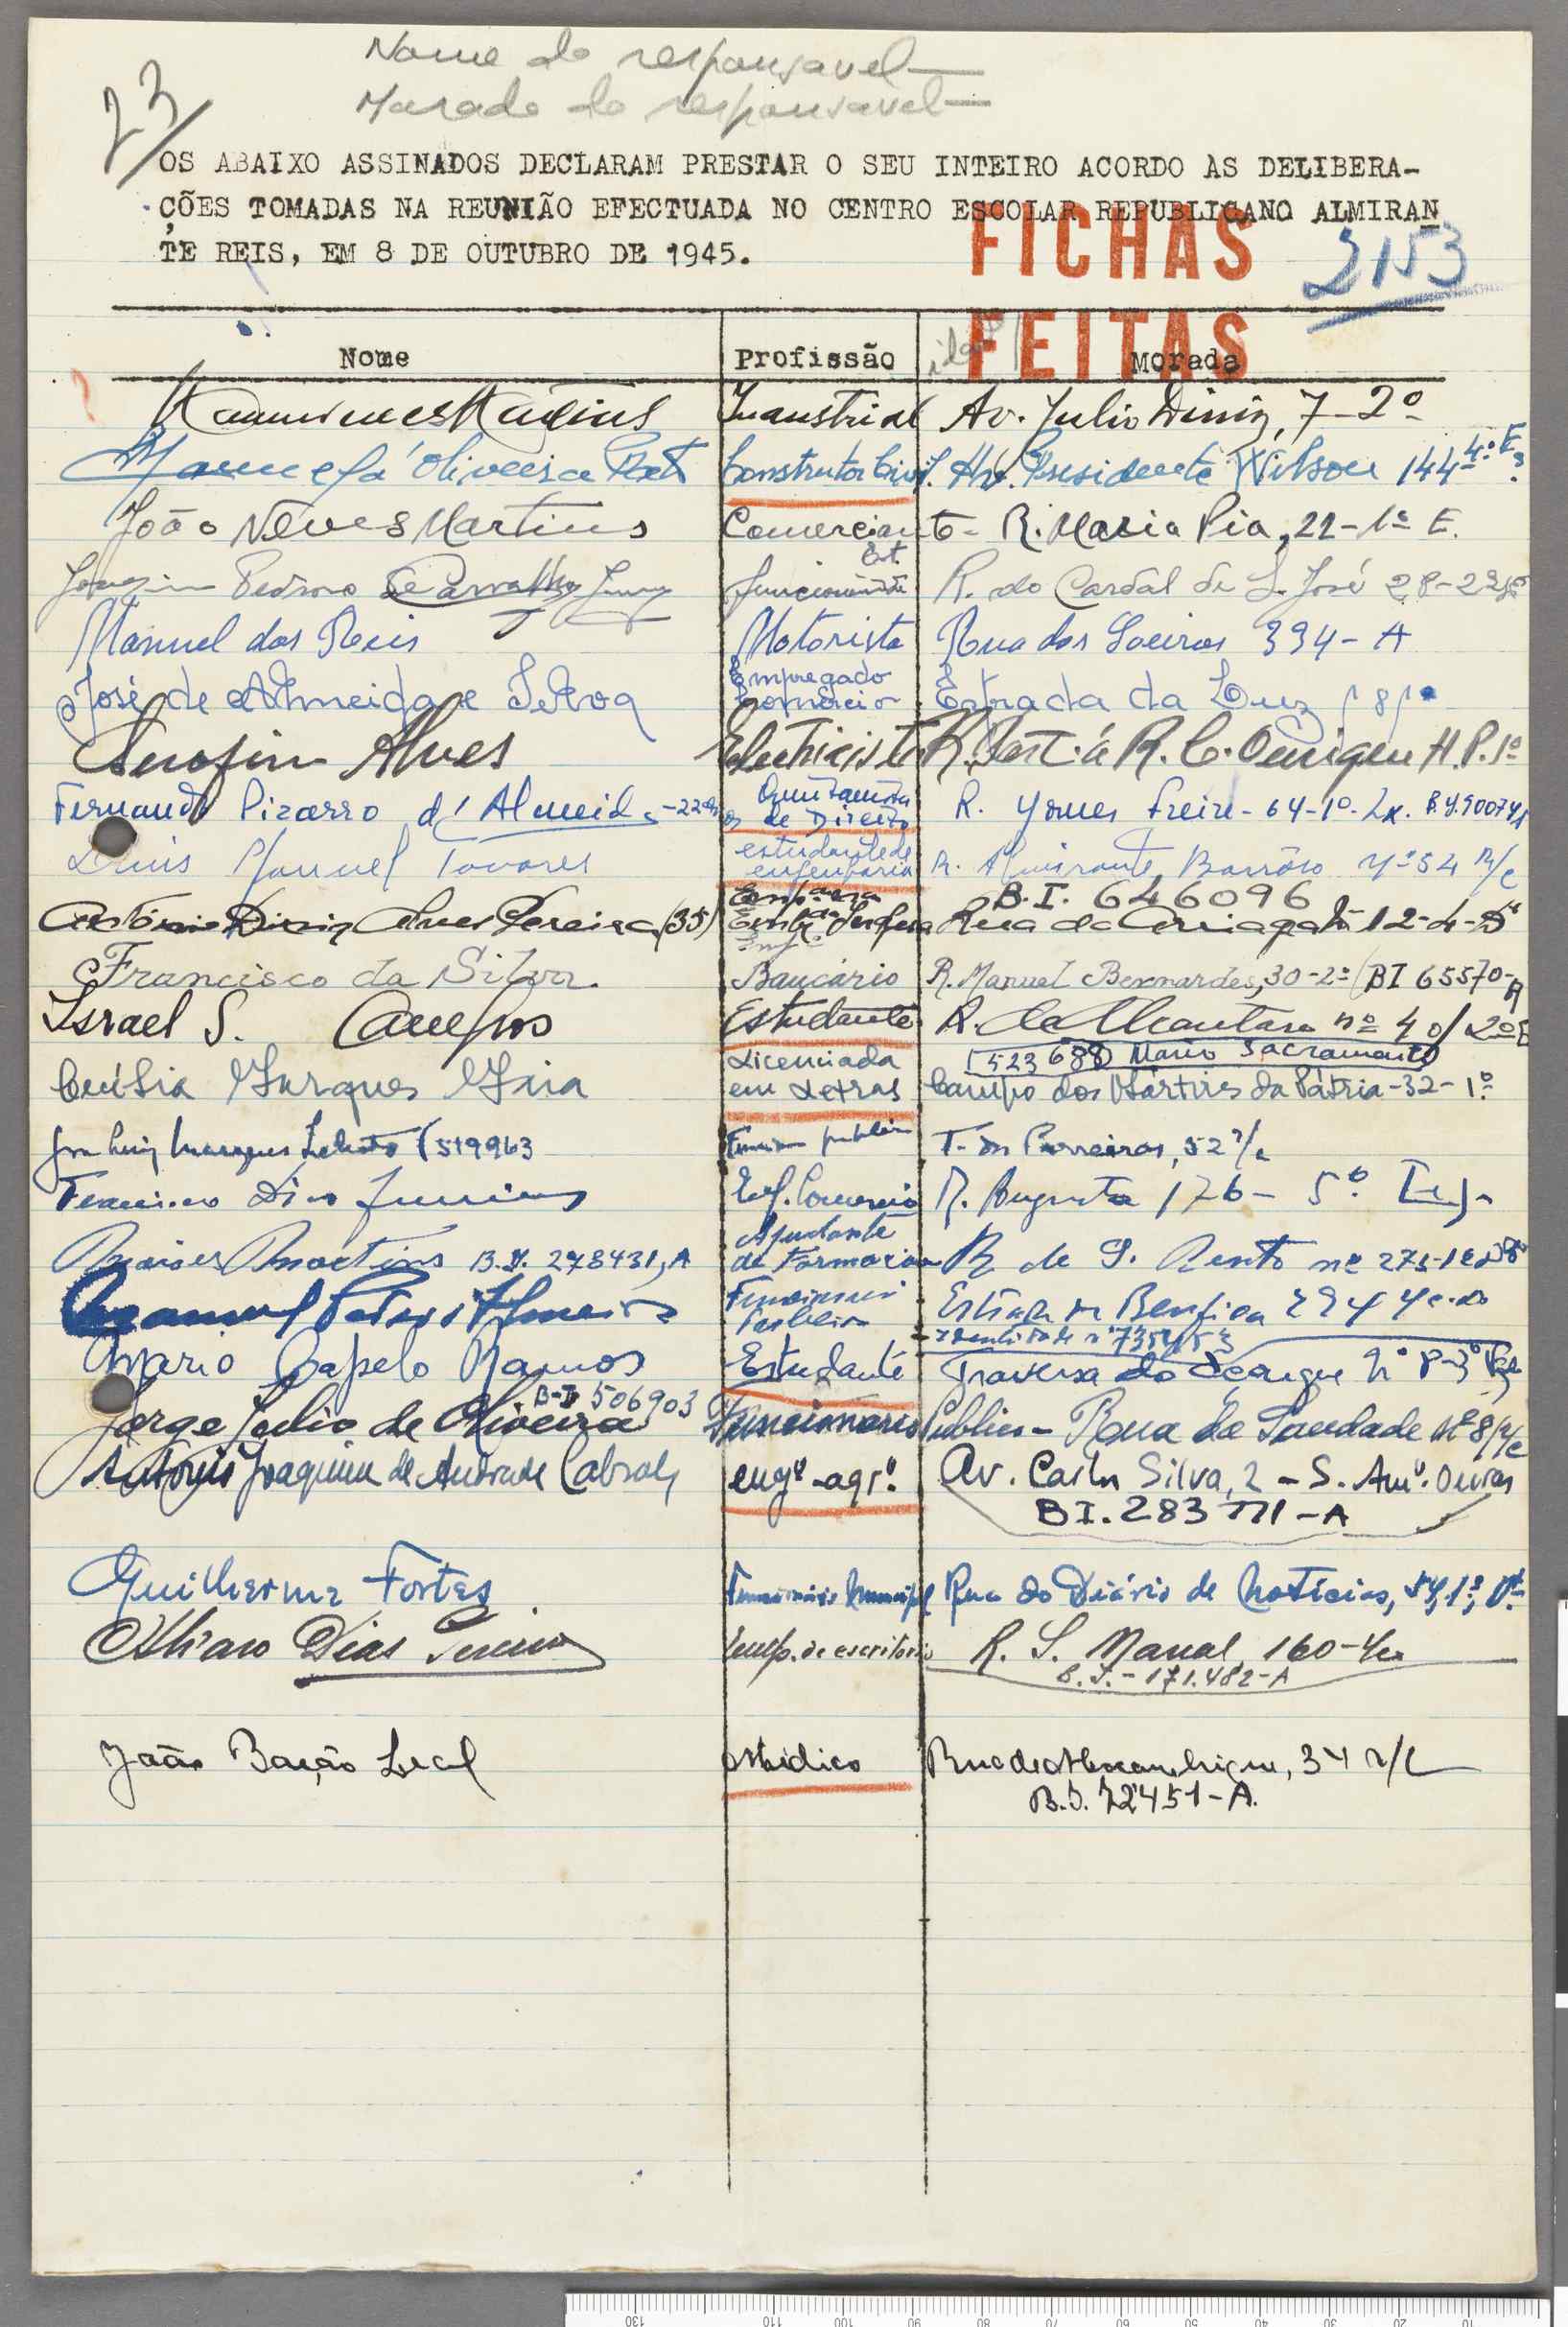 Nome do responsavel—
Morada do responsavel—
23
OS ABAIXO ASSINADOS DECLARAM PRESTAR O SEU INTEIRO ACORDO AS DELIBERA-
ÇÕES TOMADAS NA REUNIÃO EFECTUADA NO CENTRO ESCOLAR REPUBLICANO ALMIRAN
TE REIS, EM 8 DE OUTUBRO DE 1945.
FICHAS
FEITAS
2153
Nome Profissão Morada
Industrial Av. Julio Diniz, 7-2º
Manuel d'Oliveira Construtor Civil. Av. Presidente Wilson 144-4º E.
João Neves Martins Comerciante - R. Maria Pia, 22-1º E.
Joaquim de Carvalho R. do Cardal de S. José 28-2º
Manuel dos Reis Motorista Rua das Laranjeiras 394-A
José de Almeida e Silva Empregado Comércio Estrada da Luz 181
Serafim Alves Electricista H. P. 1º
Fernando Pizarro d'Almeida -22 de Direito R. Gomes Freire-64-1º-Lx. B.I. 90074
Luis Manuel Tavares estudante de engenharia R. Almirante Barrôso nº 54 R/c
B.I. 646096
António Diniz Alves Pereira (35) Rua da Arriaga 12-4-D
Francisco da Silva Bancário R. Manuel Bernardes, 30-2º (BI 65570-A
Israel S. Campos Estudante R. de Alcantara nº 40/2º E
523688) Mario Sacramento
Cecília Marques Maia Licenciada em Letras Campo dos Mártires da Pátria-32-1º
Marques (519963 T. dos Parreiras, 52 r/c
Francisco Dias Emp. Comercio R. Augusta 176- 5º Esq.
Moises Martins B.I. 278431, A Ajudante de Farmacia R. de S. Bento nº 275-1º
Manuel Estrada de Benfica
Mario Capelo Ramos Estudante Travessa do
B.I 506903
Jorge Julio de Oliveira Funcionario Publico- Rua da Saudade Nº 8 r/c
António Joaquim de Andrade Cabral, engº-agrº. Av. Carlos Silva, 2 - S. Amº. Oeiras
BI. 283 771-A
Guilherme Fortes Funcionário Municipal Rua do Diário de Notícias, 1º, Dt.
Alvaro Dias Pereira Emp. de escritorio R. S. Marçal, 160-4º
B.I.-171.482-A
João Barão Leal Médico Rua de Moçambique, 34 r/c
B.I. 72451-A.